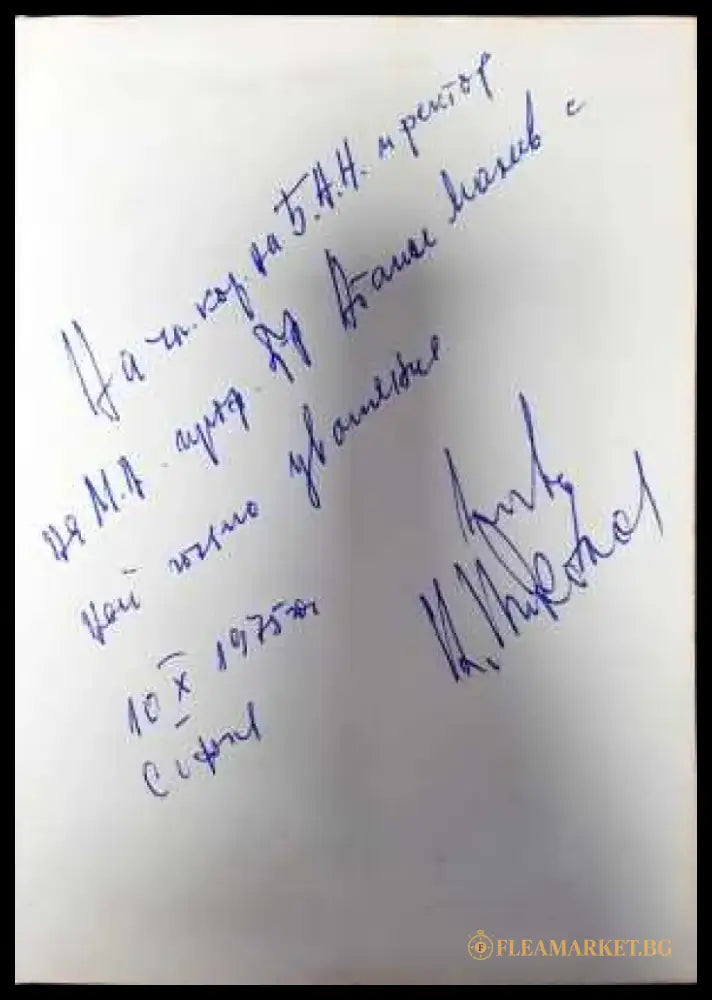 На чл. кор. на Б.А.Н. и ректор
на М.А. проф. Др Атанас Малеев с
най голямо уважение
10 X 1975 г.
София
FLEAMARKET.BG